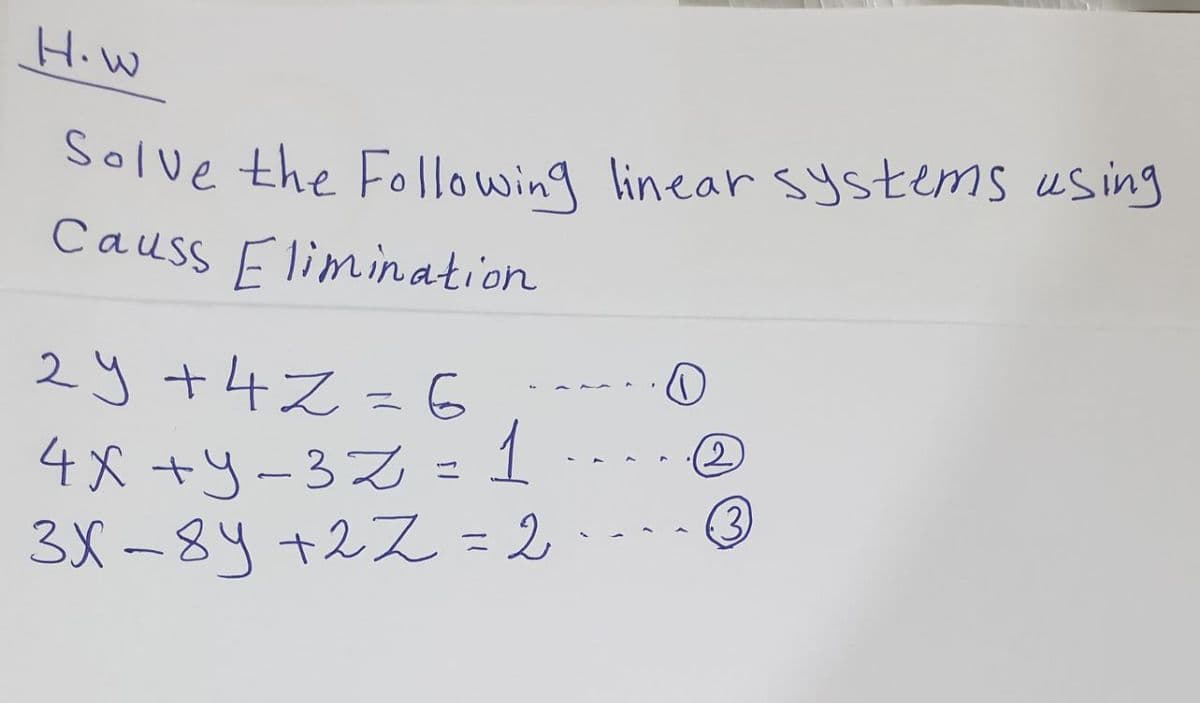 H.w
Solve the Following linear systems using
Causs Elimination
2y + 4Z = 6 ...... ①
4X + y - 3Z = 1 ..... ②
3X - 8y + 2Z = 2 ..... ③